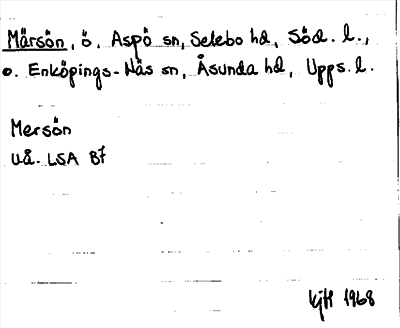 Märsön, ö. Aspö sn, Selebo hd, Söd. l.,
o. Enköpings-Näs sn, Åsunda hd, Upps. l.
Mersön
u.å. LSA B7
KjH 1968